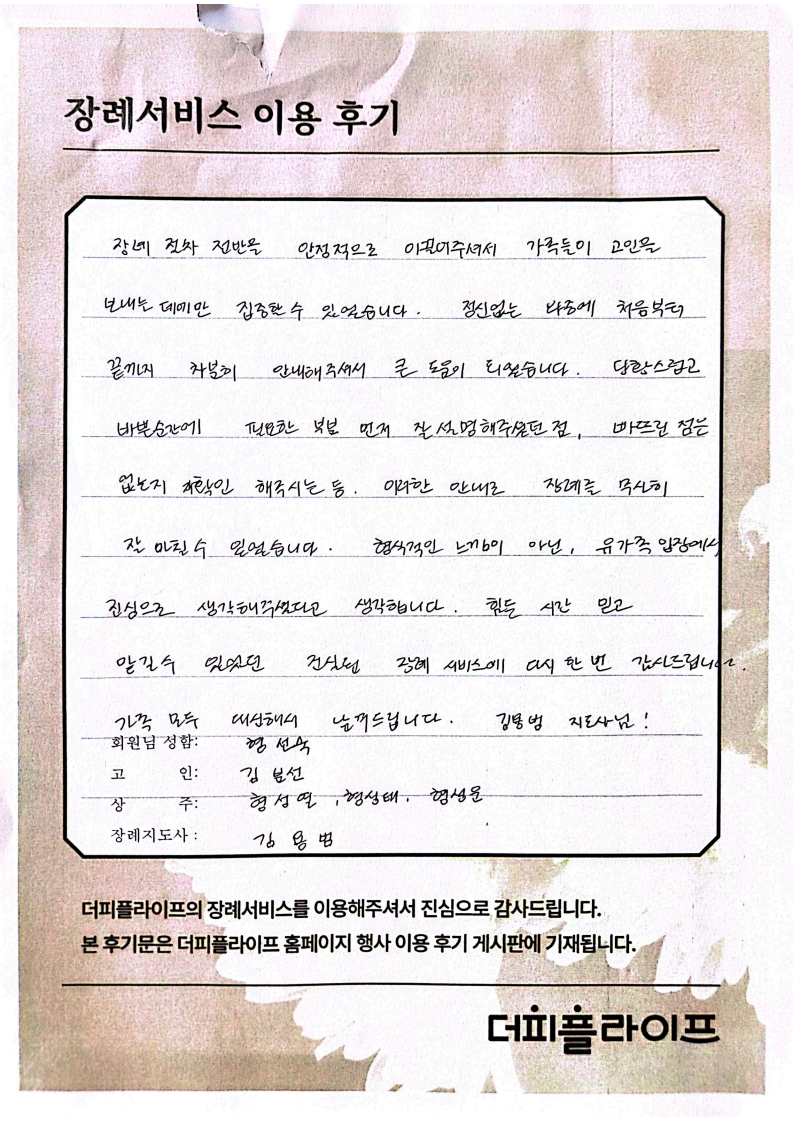 장례서비스 이용 후기
장례 절차 전반을 안정적으로 이끌어주셔서 가족들이 고인을
보내는 데에만 집중할 수 있었습니다. 정신없는 와중에 처음부터
끝까지 차분히 안내해주셔서 큰 도움이 되었습니다. 당황스럽고
바쁜순간에 필요한 부분 먼저 잘 설명해주셨던 점, 빠뜨린 점은
없는지 재확인 해주시는 등. 이러한 안내로 장례를 무사히
잘 마칠 수 있었습니다. 형식적인 느낌이 아닌, 유가족 입장에서
진심으로 생각해주셨다고 생각합니다. 힘든 시간 믿고
맡길 수 있었던 진실된 장례 서비스에 다시 한 번 감사드립니다.
가족 모두 대신해서 남겨드립니다. 김용범 지도사님!
회원님 성함: 형선숙
고 인: 김봉선
상 주: 형성열, 형성태, 형성운
장례지도사: 김용범
더피플라이프의 장례서비스를 이용해주셔서 진심으로 감사드립니다.
본 후기문은 더피플라이프 홈페이지 행사 이용 후기 게시판에 기재됩니다.
더피플라이프